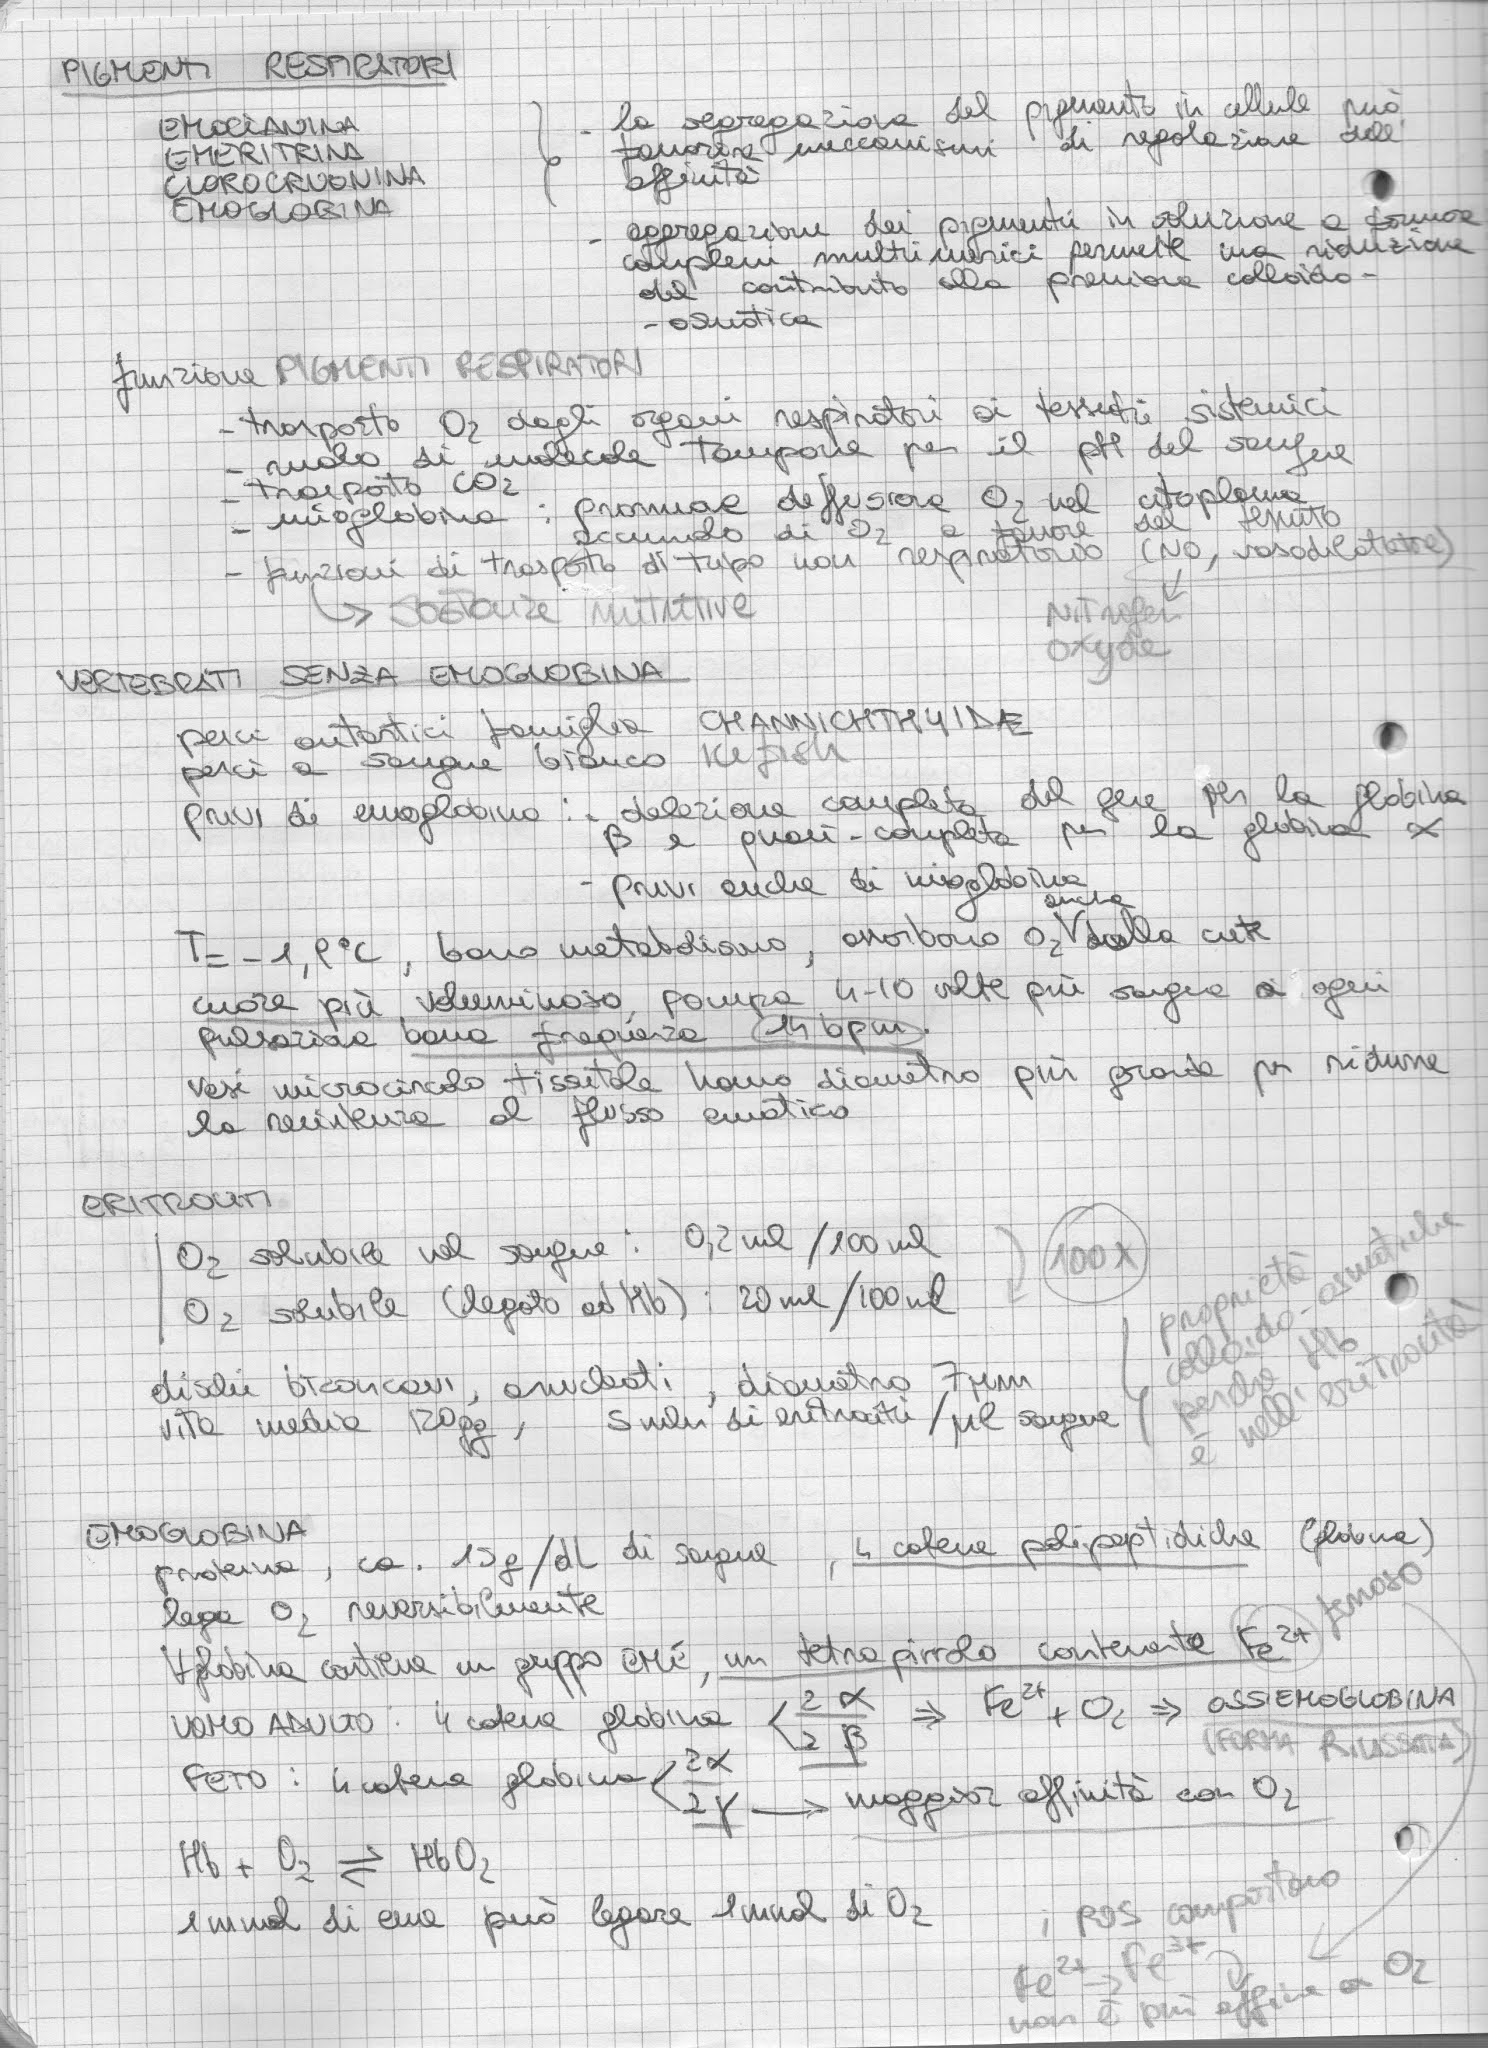 PIGMENTI RESPIRATORI
EMOCIANINA
EMERITRINA
CLOROCRUONINA
EMOGLOBINA
- la segregazione del pigmento in cellule può
favorire meccanismi di regolazione dell'
affinità
- aggregazione dei pigmenti in soluzione a formare
complessi multimerici permette una riduzione
del contributo alla pressione colloido-
- osmotica
funzione PIGMENTI RESPIRATORI
- trasporto O2 dagli organi respiratori ai tessuti sistemici
- ruolo di molecole tampone per il pH del sangue
- trasporto CO2
- mioglobina : promuove diffusione O2 nel citoplasma
accumulo di O2 a favore del tessuto
- funzioni di trasporto di tipo non respiratorio (NO, vasodilatatore)
↳ sostanze nutritive
Nitrogen
Oxyde
VERTEBRATI SENZA EMOGLOBINA
pesci antartici famiglia CHANNICHTHYIDAE
pesci a sangue bianco Icefish
privi di emoglobina : - delezione completa del gene per la globina
β e quasi-completa per la globina α
- privi anche di mioglobina
T = -1,9°C, basso metabolismo, assorbono O2 anche dalla cute
cuore più voluminoso, pompa 4-10 volte più sangue a ogni
pulsazione bassa frequenza (14 bpm).
vasi microcircolo tissutale hanno diametro più grande per ridurre
la resistenza al flusso ematico
ERITROCITI
O2 solubile nel sangue : 0,2 ml /100 ml
O2 solubile (legato ad Hb) : 20 ml /100 ml
100x
dischi biconcavi, anucleati, diametro 7 μm
vita media 120gg, 5 mln di eritrociti /μl sangue
proprietà
colloido-osmotiche
perché Hb
è nelli eritrociti
EMOGLOBINA
proteina, ca. 15g/dL di sangue, 4 catene polipeptidiche (globine)
lega O2 reversibilmente
∀ globina contiene un gruppo EME, un tetrapirrolo contenente Fe2+ ferroso
UOMO ADULTO : 4 catene globina < 2 α / 2 β ⇒ Fe2+ + O2 ⇒ OSSIEMOGLOBINA
(FORMA RILASSATA)
FETO : 4 catene globina < 2α / 2γ → maggior affinità con O2
Hb + O2 ⇌ HbO2
1 mmol di eme può legare 1 mmol di O2
i ROS comportano
Fe2+ → Fe3+
non è più affine a O2